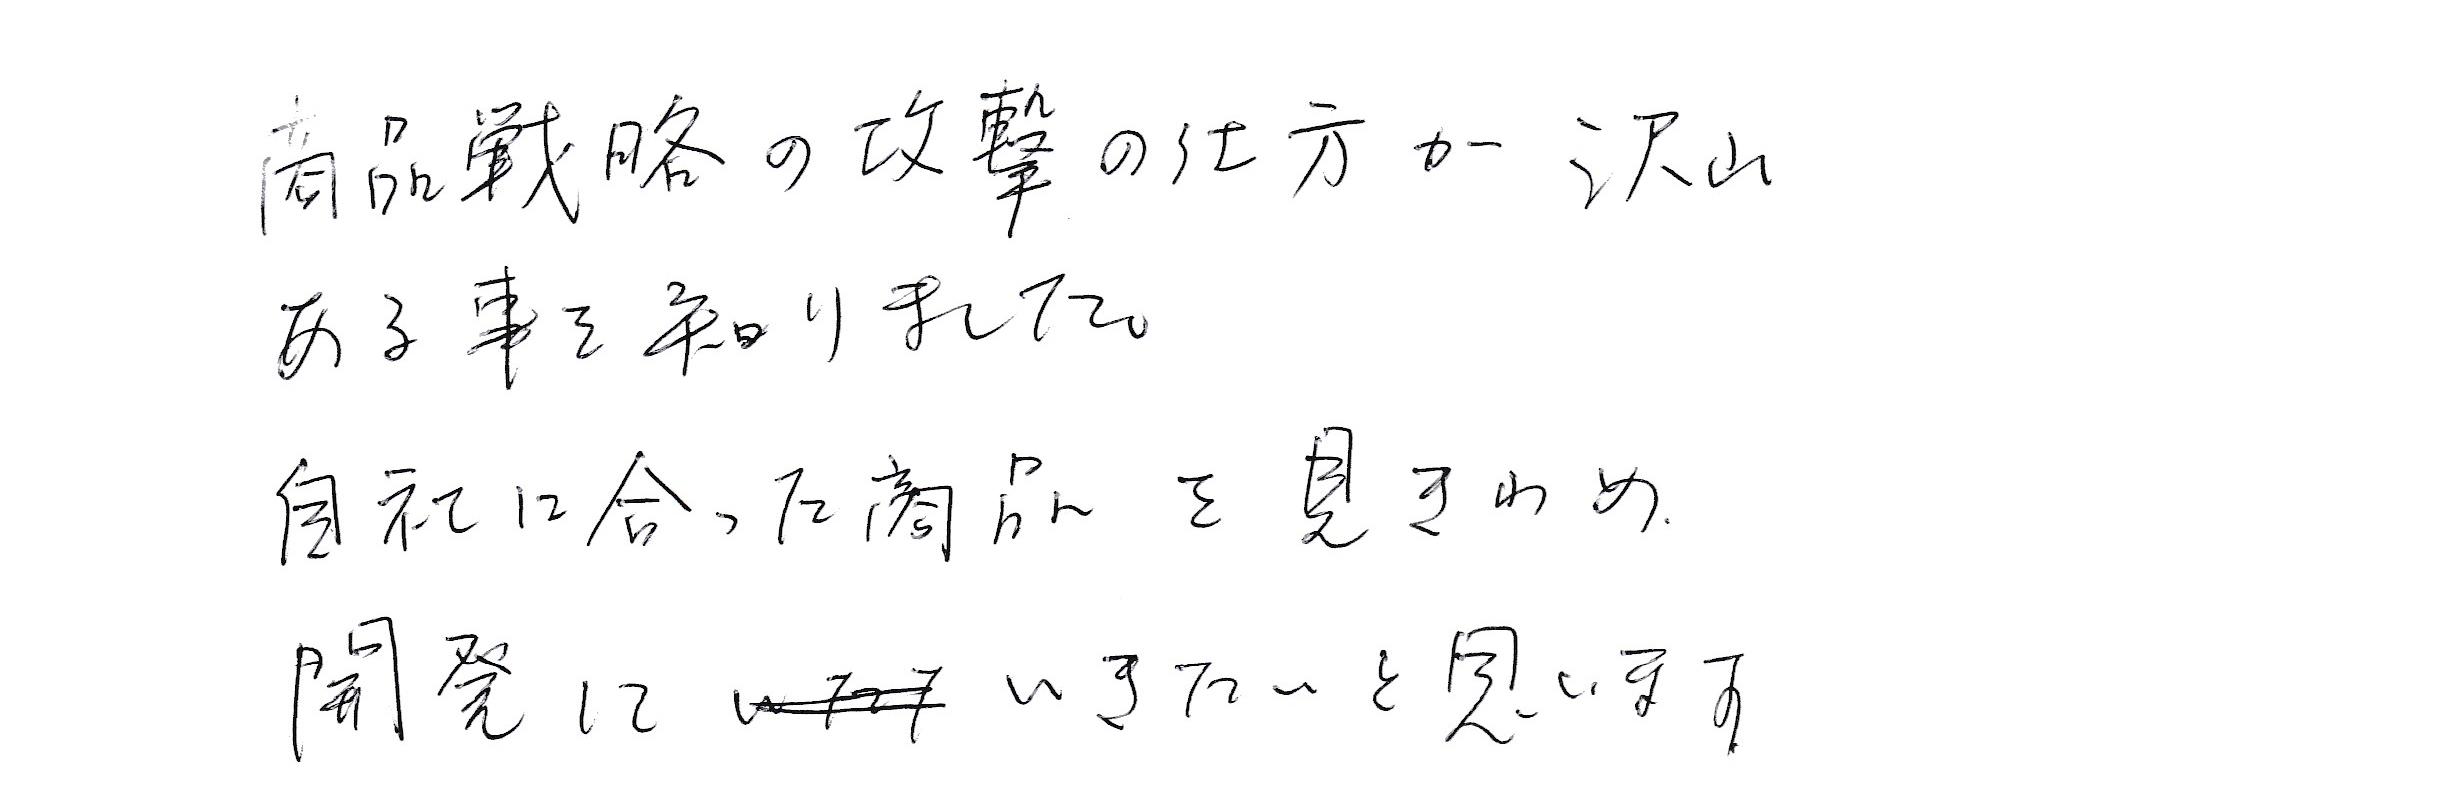 商品戦略の攻撃の仕方が沢山
ある事を知りました。
自社に合った商品を見きわめ、
開発に いきたいと思います